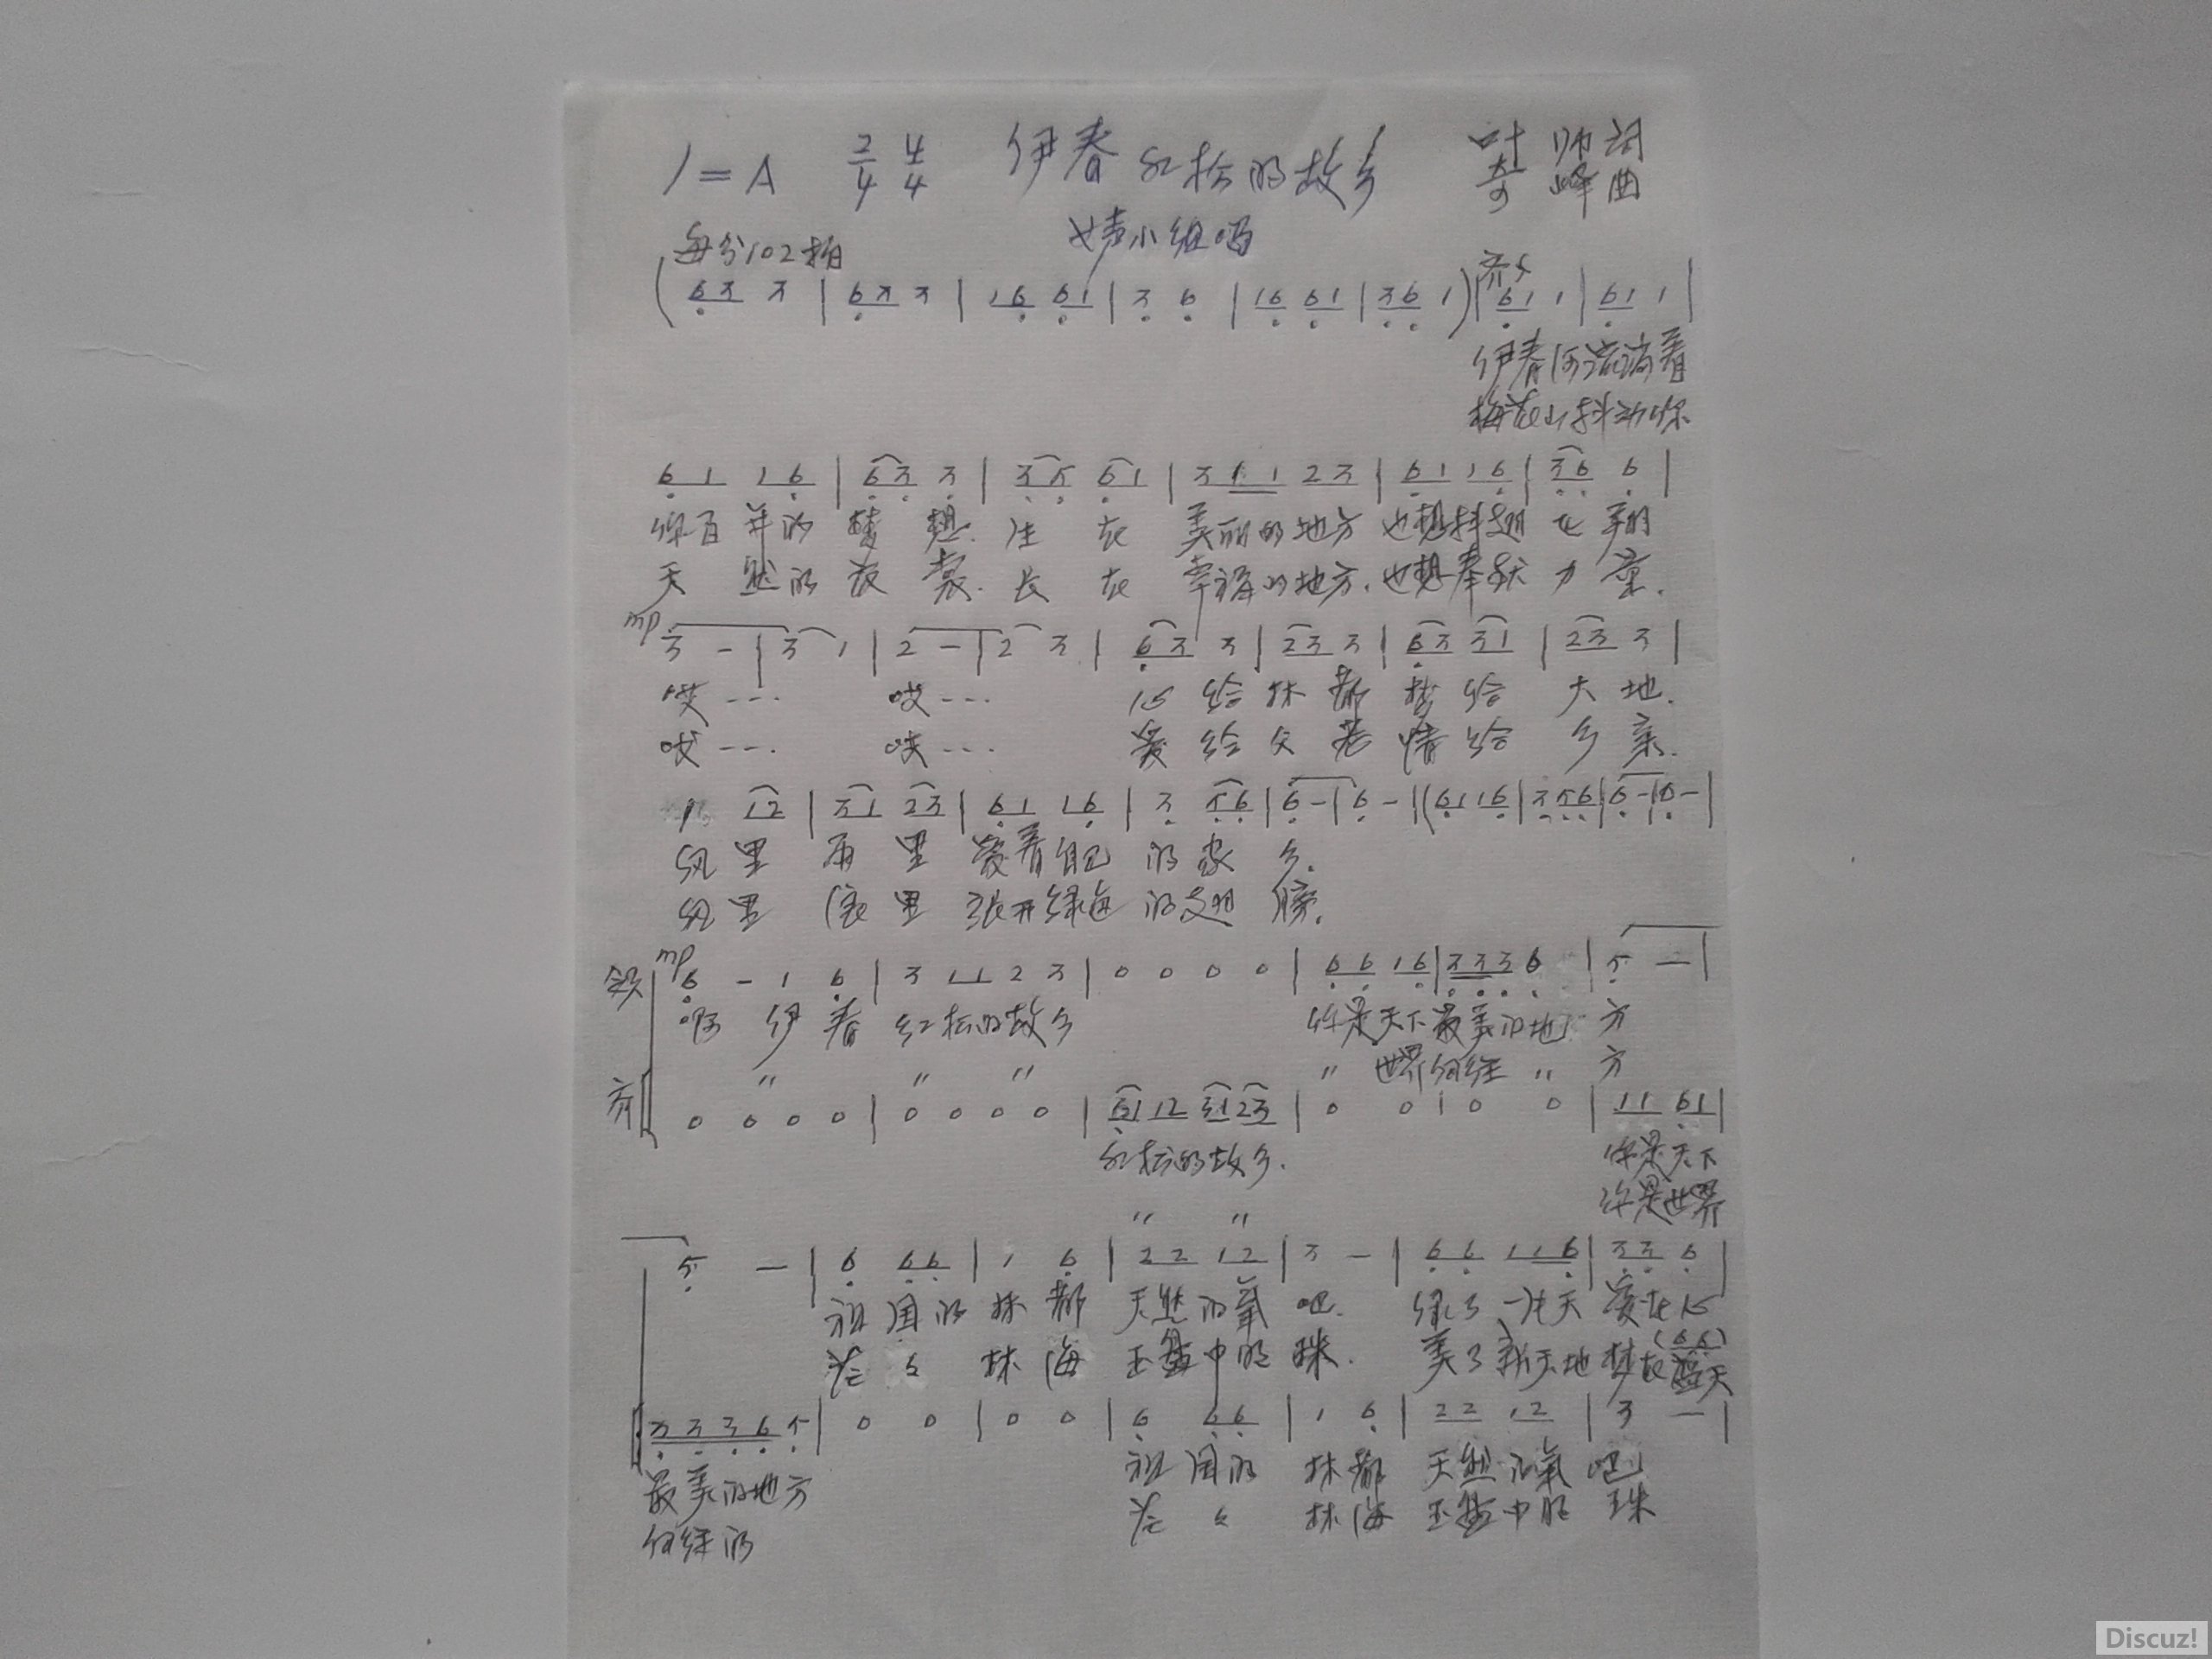 1=A 2/4 4/4 伊春红松的故乡 叶帅词
奇峰曲
女声小组唱
每分102拍
(63 3 | 63 3 | 16 61 | 3 6 | 16 61 | 36 1) | 61 1 | 61 1 |
伊春河流淌着
梅花山抖动你
61 16 | 63 3 | 35 61 | 3 61 23 | 61 16 | 36 6 |
你百年的梦想. 住在美丽的地方 也想抖翅飞翔
天然的衣裳. 长在幸福的地方. 也想奉献力量.
mp 3 - | 3 1 | 2 - | 2 3 | 63 3 | 23 3 | 63 31 | 23 3 |
哎--- 哎--- 心给林都 梦给大地.
哎--- 哎--- 爱给父老 情给乡亲.
1 12 | 31 23 | 61 16 | 3 56 | 6 - | 6 - | (61 16 | 3 56 | 6 - | 6 - |
风里雨里 爱着自己的家乡.
风里浪里 张开绿海的翅膀.
领 mp 6 - 1 6 | 3 11 2 3 | 0 0 0 0 | 66 16 | 333 6 | 5 - |
啊 伊春 红松的故乡 你是天下最美的地方
〃 〃 〃 〃 世界何绿 〃 方
齐 0 0 0 0 | 0 0 0 0 | 61 12 31 23 | 0 0 | 0 0 | 11 61 |
红松的故乡. 你是天下
〃 〃 你是世界
5 - | 6 66 | 1 6 | 22 12 | 3 - | 66 116 | 33 6 |
祖国的林都 天然的氧吧. 绿了一片天 爱在心
茫茫林海 玉盘中的珠. 美了新天地 梦在(66)蓝天
3336 5 | 0 0 | 0 0 | 6 66 | 1 6 | 22 12 | 3 - |
最美的地方 祖国的林都 天然的氧吧
何绿的 茫茫林海 玉盘中的珠
Discuz!